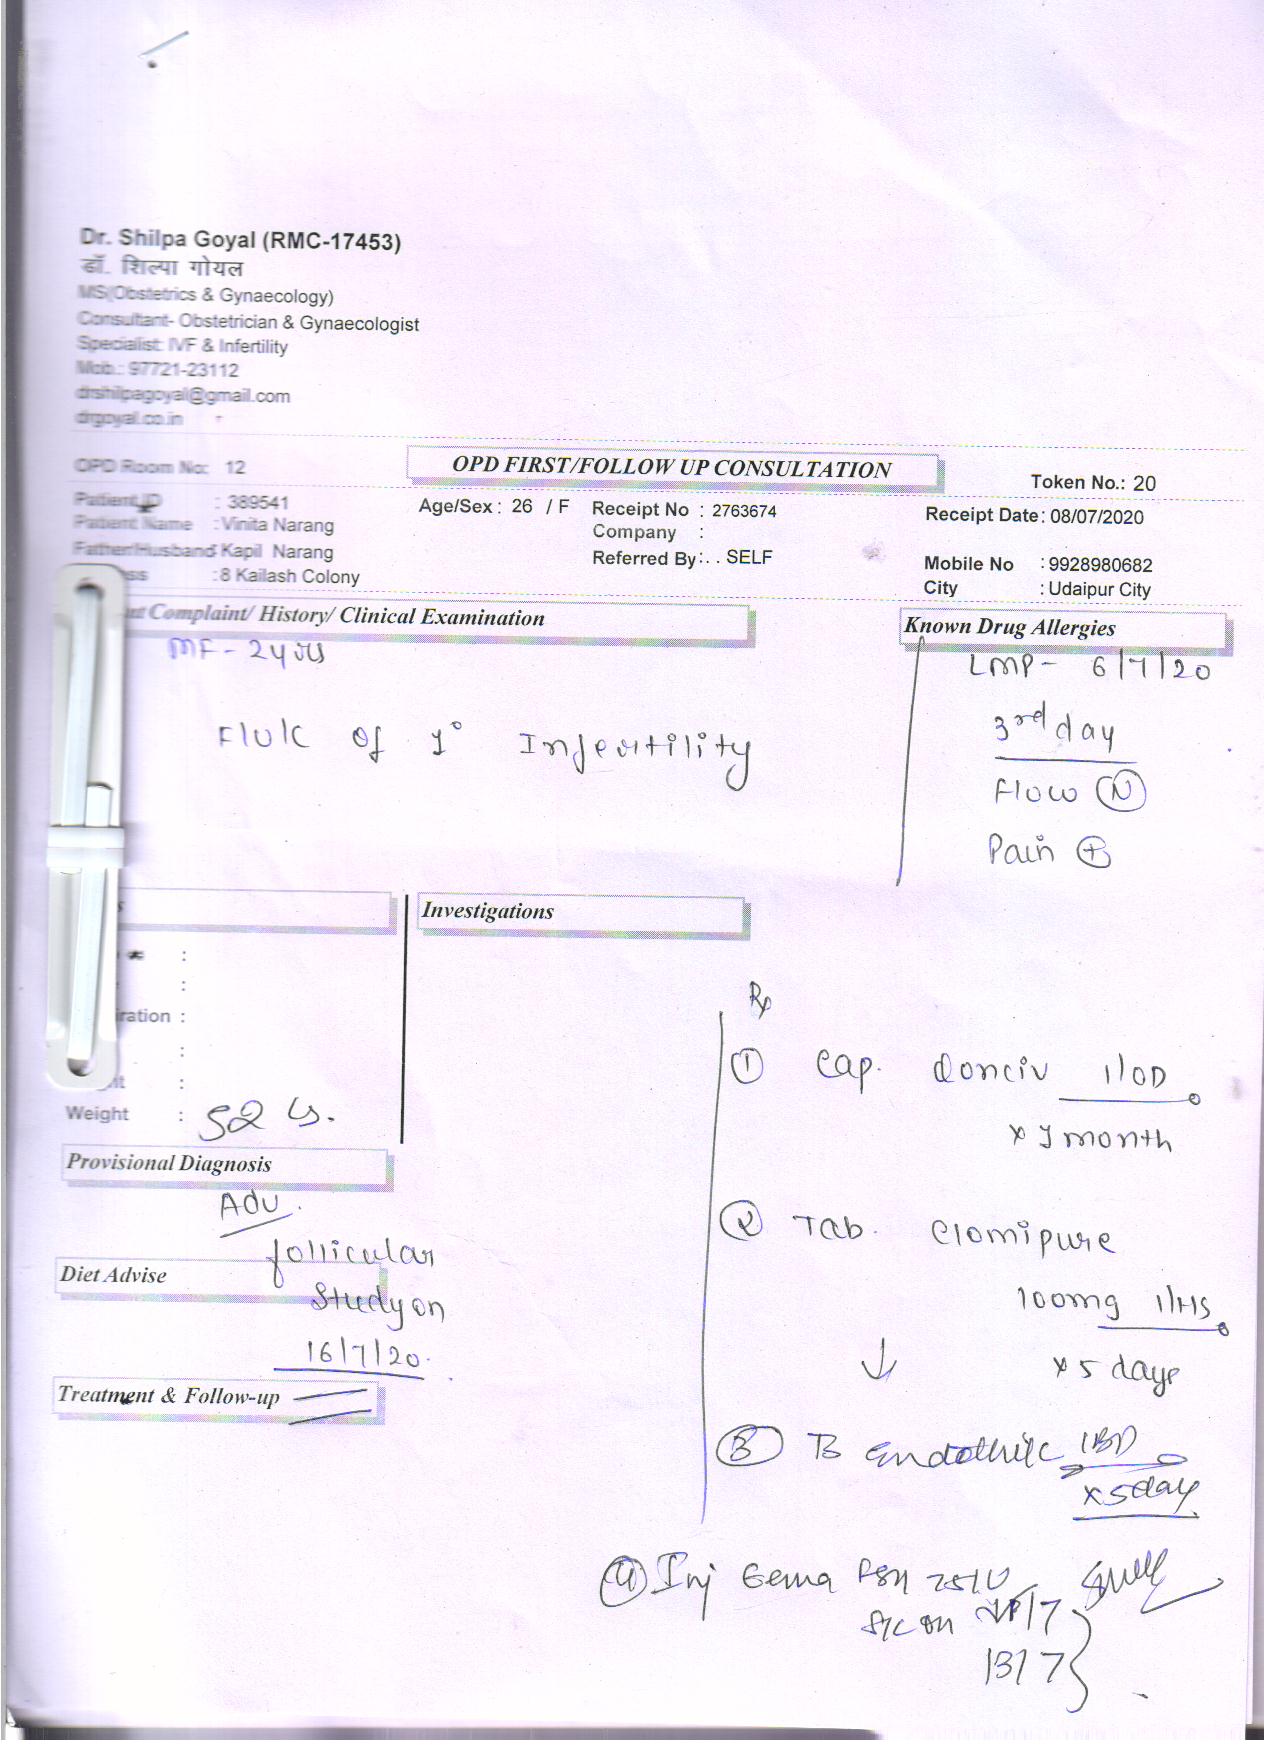 Dr. Shilpa Goyal (RMC-17453)
डॉ. शिल्पा गोयल
MS(Obstetrics & Gynaecology)
Consultant- Obstetrician & Gynaecologist
Specialist: IVF & Infertility
Mob.: 97721-23112
drshilpagoyal@gmail.com
drgoyal.co.in
OPD Room No: 12
OPD FIRST/FOLLOW UP CONSULTATION
Token No.: 20
Patient ID : 389541
Age/Sex : 26 / F
Receipt No : 2763674
Receipt Date: 08/07/2020
Patient Name : Vinita Narang
Company :
Father/Husband: Kapil Narang
Referred By: . . SELF
Mobile No : 9928980682
ss : 8 Kailash Colony
City : Udaipur City
nt Complaint/ History/ Clinical Examination
Known Drug Allergies
MF - 2yrs
F/U/C of 1° Infertility
LMP - 6/7/20
3rd day
Flow N
Pain +
s
Investigations
:
:
ration :
:
ht :
Weight : 52
Provisional Diagnosis
Adv.
follicular
Diet Advise
Study on
16/7/20.
Treatment & Follow-up
Rx
1 Cap. Donciv 1/OD
x 1 month
2 Tab. Clomipure
100mg 1/HS
↓ x 5 days
3 1BD
x 5 day
4 Inj Gema FSH 75IU
S/C on /7
13/7